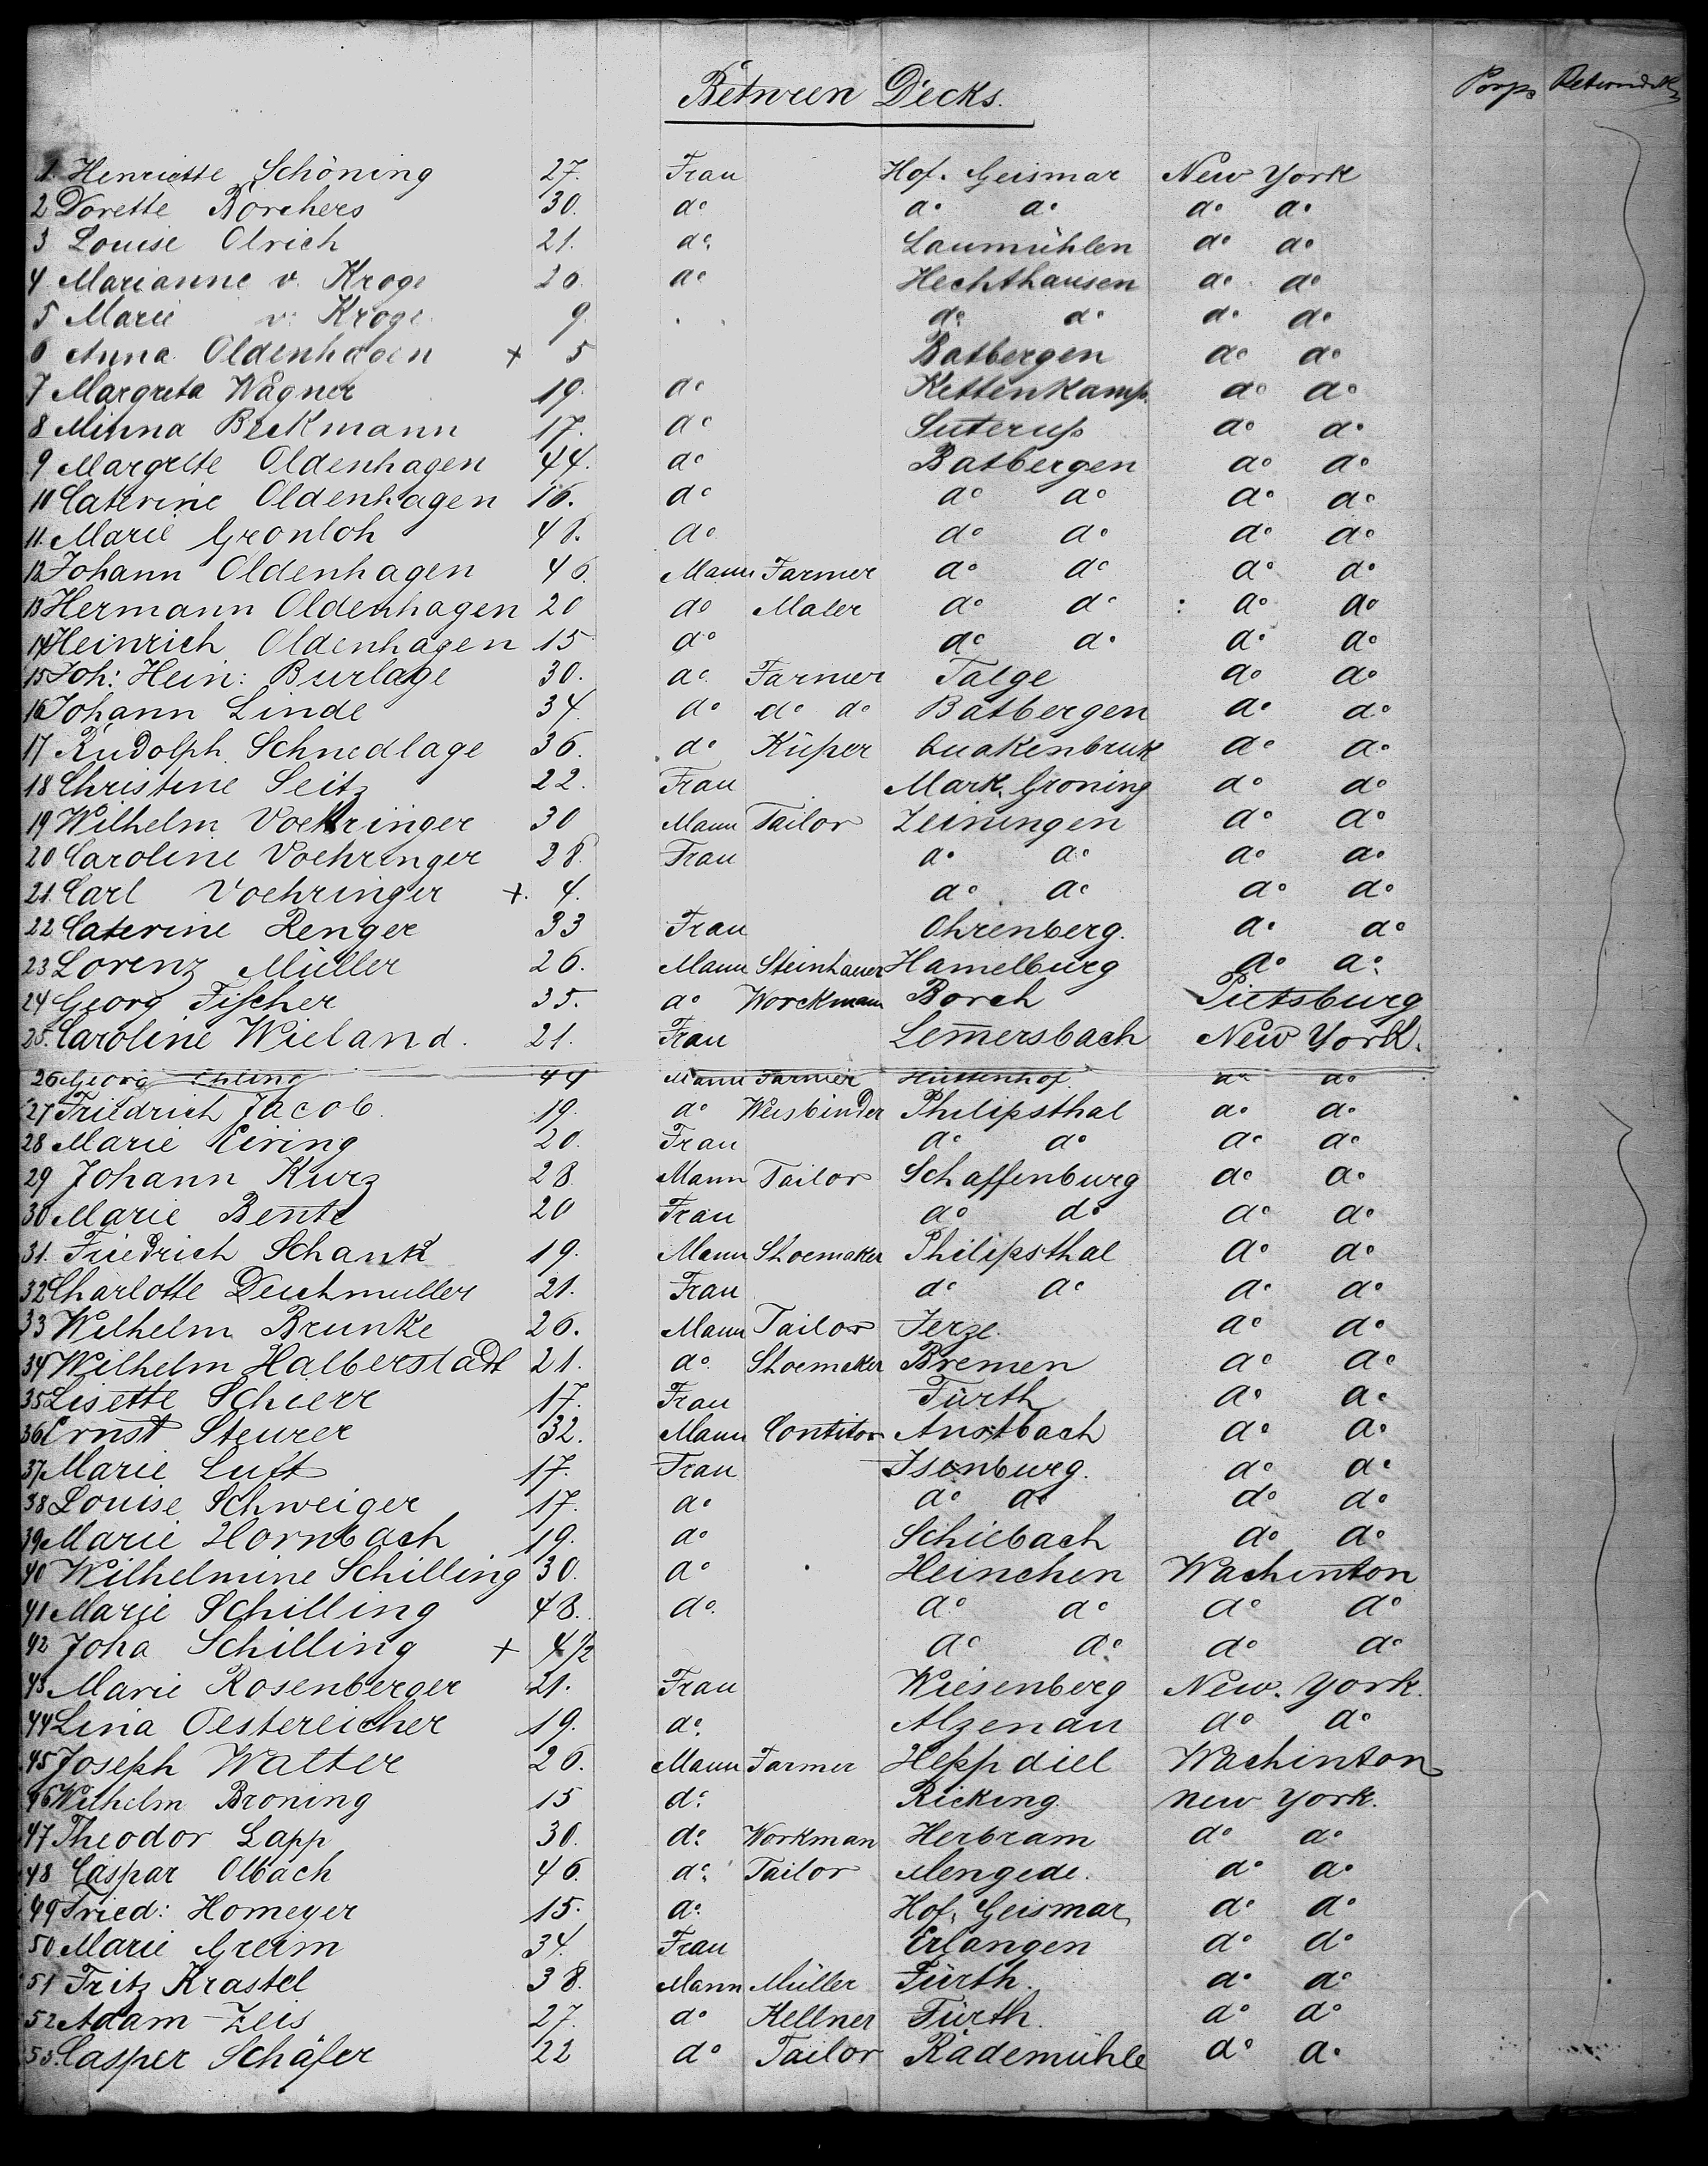 Between Decks.
1. Henriette Schöning 27. Frau Hof. Geismar New York
2 Dorette Borchers 30. do do do do do
3 Louise Olrich 21. do Laumühlen do do
4 Marianne v. Kroge 20. do Hechthausen do do
5 Marie v. Kroge 9. do do do do
6 Anna Oldenhagen + 5 Batbergen do do
7 Margreta Wagner 19. do Kettenkamp. do do
8 Minna Beckmann 17. do Suterup do do
9 Margrete Oldenhagen 44. do Batbergen do do
10 Caterine Oldenhagen 16. do do do do do
11. Marie Gronloh 48. do do do do do
12 Johann Oldenhagen 46. Mann Farmer do do do do
13 Hermann Oldenhagen 20 do Maler do do : do do
14 Heinrich Oldenhagen 15 do do do do do
15 Joh: Hein: Burlage 30. do Farmer Talge do do
16 Johann Linde 34. do do do Batbergen do do
17 Rudolph Schnedlage 36. do Küper Quakenbruk do do
18 Christine Seitz 22. Frau Mark. Groning do do
19 Wilhelm Voehringer 30 Mann Tailor Zeiningen do do
20 Caroline Voehringer 28. Frau do do do do
21. Carl Voehringer +. 4. do do do do
22 Caterine Renger 33 Frau Ohrenberg. do do
23 Lorenz Müller 26. Mann Steinhauer Hamelburg do do
24 Georg Fischer 35. do Workmann Borch Pietsburg
25. Caroline Wieland. 21. Frau Lem̄ersbach New York.
26 Georg 44 Mann Farmer Hüttenhof. do do
27 Friedrich Jacob. 19. do Weisbinder Philipsthal do do
28 Marie Eiring 20. Frau do do do do
29 Johann Kurz 28. Mann Tailor Schaffenburg do do
30 Marie Bente 20 Frau do do do do
31. Friedrich Schank 19. Mann Shoemaker Philipsthal do do
32 Charlotte Deichmuller 21. Frau do do do do
33 Wilhelm Brunke 26. Mann Tailor Jerze. do do
34 Wilhelm Halberstadt 21. do Shoemaker Bremen do do
35 Lisette Scherr 17. Frau Fürth do do
36 Ernst Steurer 32. Mann Contitor Anstbach do do
37 Marie Luft 17. Frau Isenburg. do do
38 Louise Schweiger 17. do do do do do
39 Marie Hornbach 19. do Schiebach do do
40 Wilhelmine Schilling 30. do Heinchen Wachinton
41 Marie Schilling 48. do do do do do
42 Joha Schilling + 4 1/2 do do do do
43 Marie Rosenberger 21. Frau Wiesenberg New. York.
44 Lina Oestereicher 19. do Alzenau do do
45 Joseph Walter 26. Mann Farmer Heppdiel Wachinton
46 Wilhelm Broning 15 do Ricking. New York.
47 Theodor Lapp 30. do Workman Herbram do do
48 Caspar Olbach 46. do Tailor Mengede. do do
49 Fried: Homeyer 15. do Hof. Geismar do do
50 Marie Greim 34. Frau Erlangen do do
51 Fritz Krastel 38. Mann Müller Fürth. do do
52 Adam Zeis 27. do Kellner Fürth. do do
53. Casper Schäfer 22 do Tailor Rädemühle do do